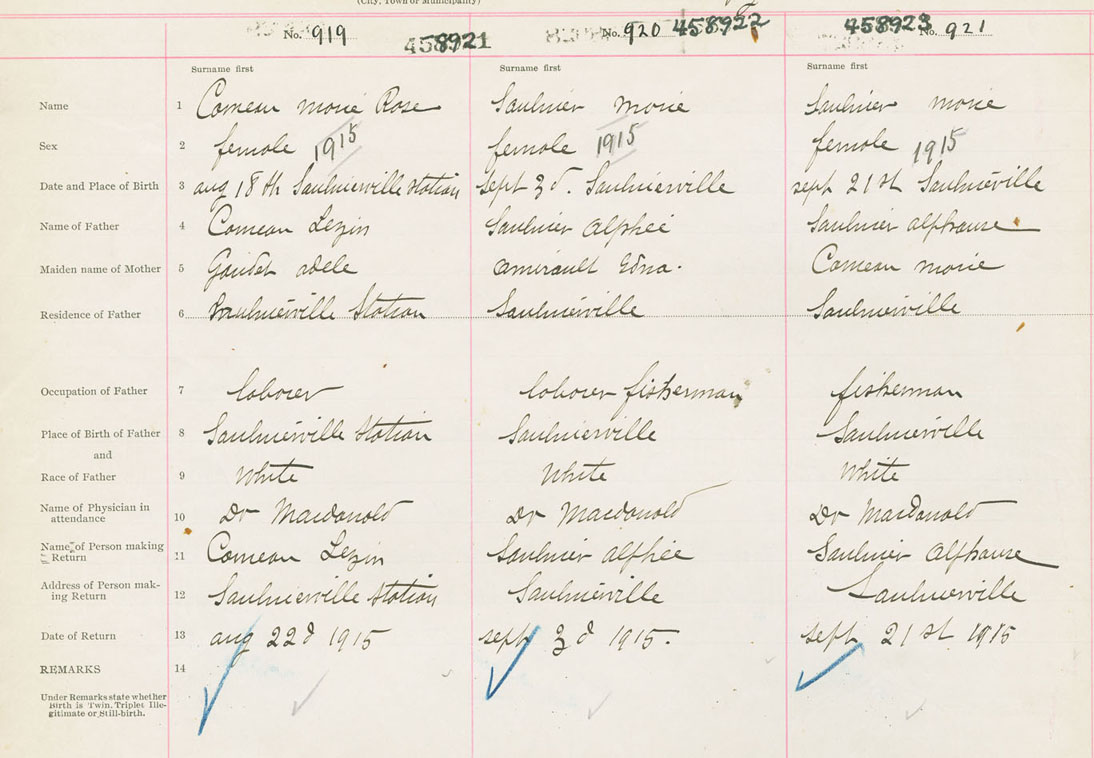 (City, Town or Municipality)
No. 919 458921 No. 920 458922 458923 No. 921
Surname first Surname first Surname first
Name 1 Comeau Marie Rose Saulnier Marie Saulnier Marie
Sex 2 female 1915 female 1915 female 1915
Date and Place of Birth 3 aug 18th Saulnierville Station sept 3d. Saulnierville sept 21st Saulnierville
Name of Father 4 Comeau Lezin Saulnier Alphée Saulnier alphause
Maiden name of Mother 5 Gaudet adele amirault Edna. Comeau Marie
Residence of Father 6 Saulnierville Station Saulnierville Saulnierville
Occupation of Father 7 laborer laborer fisherman fisherman
Place of Birth of Father 8 Saulnierville Station Saulnierville Saulnierville
and
Race of Father 9 White White White
Name of Physician in
attendance 10 Dr Macdonald Dr Macdonald Dr Macdonald
Name of Person making
Return 11 Comeau Lezin Saulnier alphée Saulnier Alphause
Address of Person mak-
ing Return 12 Saulnierville Station Saulnierville Saulnierville
Date of Return 13 aug 22d 1915 sept 3d 1915. sept 21st 1915
REMARKS 14
Under Remarks state whether
Birth is Twin, Triplet Ille-
gitimate or Still-birth.